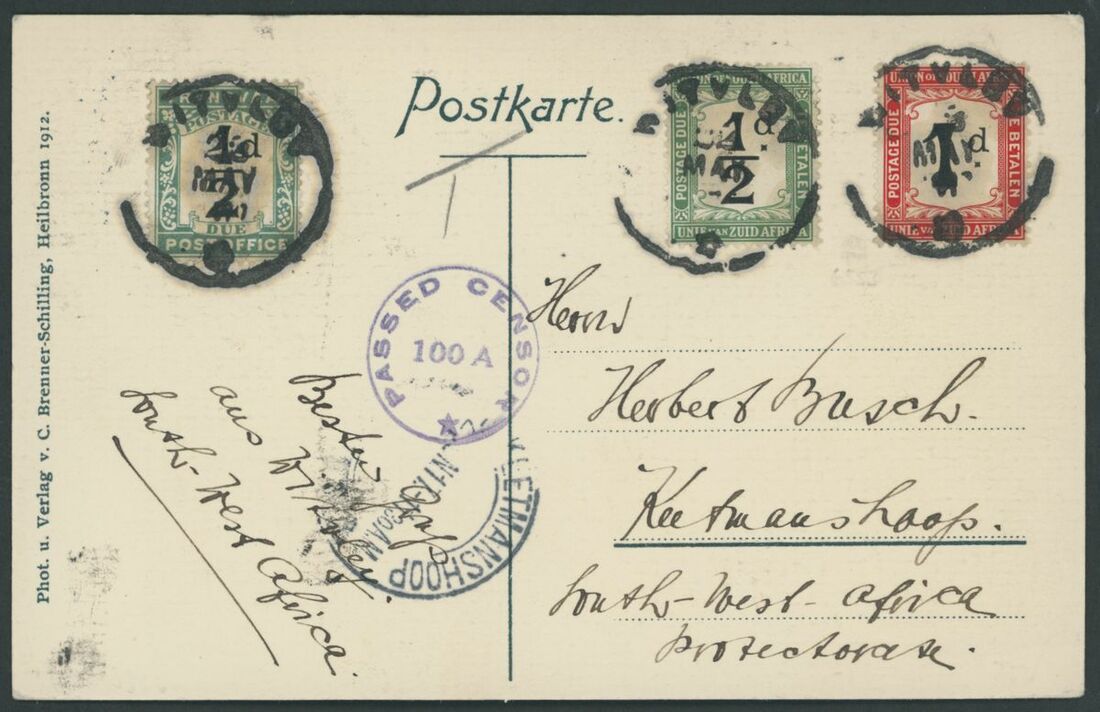 Phot. u. Verlag v. C. Brenner-Schilling, Heilbronn 1912.
Postkarte.
POSTAGE
½d
DUE
POST OFFICE
UNION OF SOUTH AFRICA
POSTAGE DUE
½d
TE BETALEN
UNIE VAN ZUID AFRICA
UNION OF SOUTH AFRICA
POSTAGE DUE
1d
TE BETALEN
UNIE VAN ZUID AFRICA
WITVLEY
MAY
WITVLEY
MAY
WITVLEY
MAY
T
PASSED CENSOR
100 A
KEETMANSHOOP
Bester Gruß
aus Witvley.
South-West Africa.
Herrn
Herbert Busch.
Keetmanshoop.
South-West-Africa
Protectorate.